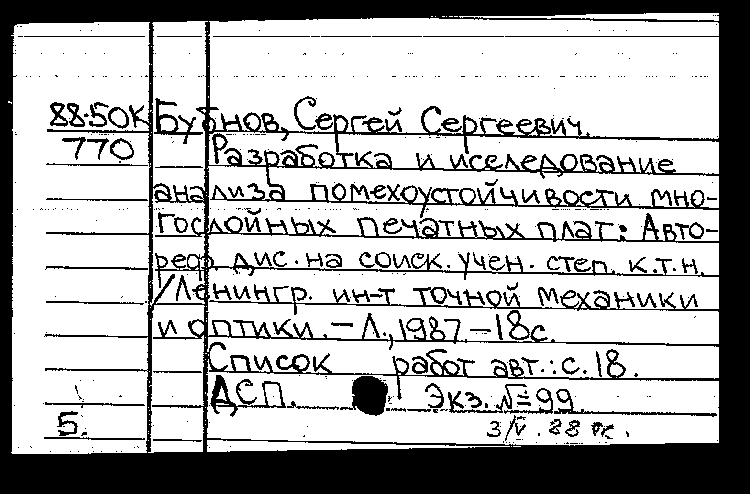 88-50К Бубнов, Сергей Сергеевич.
770 Разработка и иселедование
анализа помехоустойчивости мно-
гослойных печатных плат: Авто-
реф. дис. на соиск. учен. степ. к.т.н.
/Ленингр. ин-т точной механики
и оптики. - Л., 1987. - 18с.
Список работ авт.: с. 18.
ДСП. Экз. №99.
5.
3/V. 88